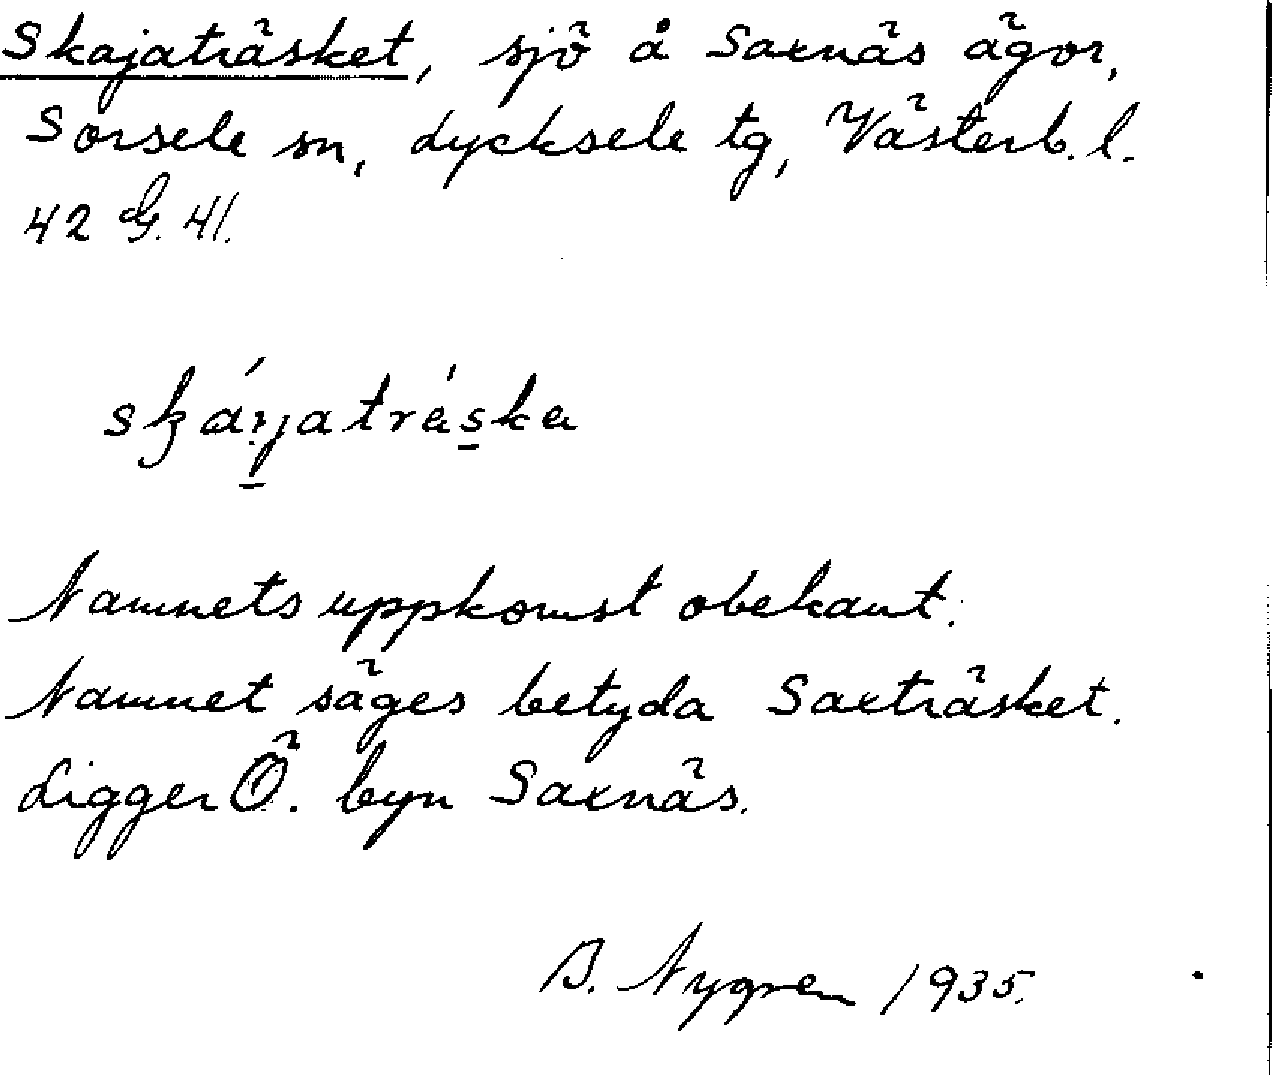 Skajaträsket, sjö å Saxnäs ägor,
Sorsele sn, Lycksele tg, Västerb. l.
42 G. 41.
Namnets uppkomst obekant.
Namnet säges betyda Saxträsket.
Ligger Ö. byn Saxnäs.
B. Nygren 1935.